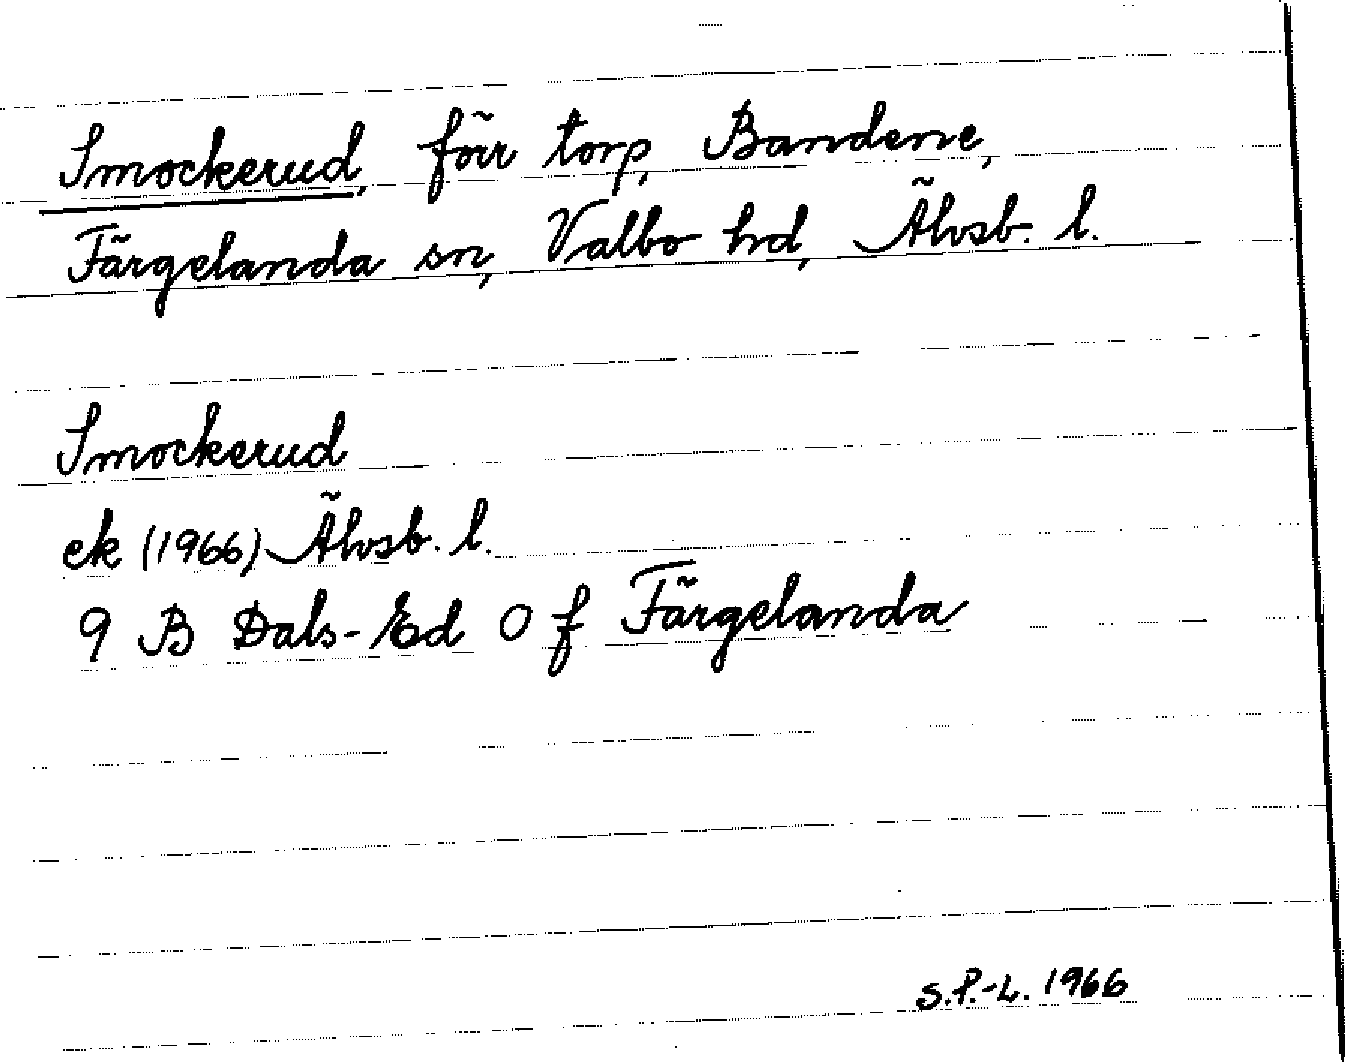 Smockerud, förr torp, Bandene,
Färgelanda sn, Valbo hd, Älvsb. l.
Smockerud
ek (1966) Älvsb. l.
9 B Dals-Ed O f Färgelanda
S.P.-L. 1966